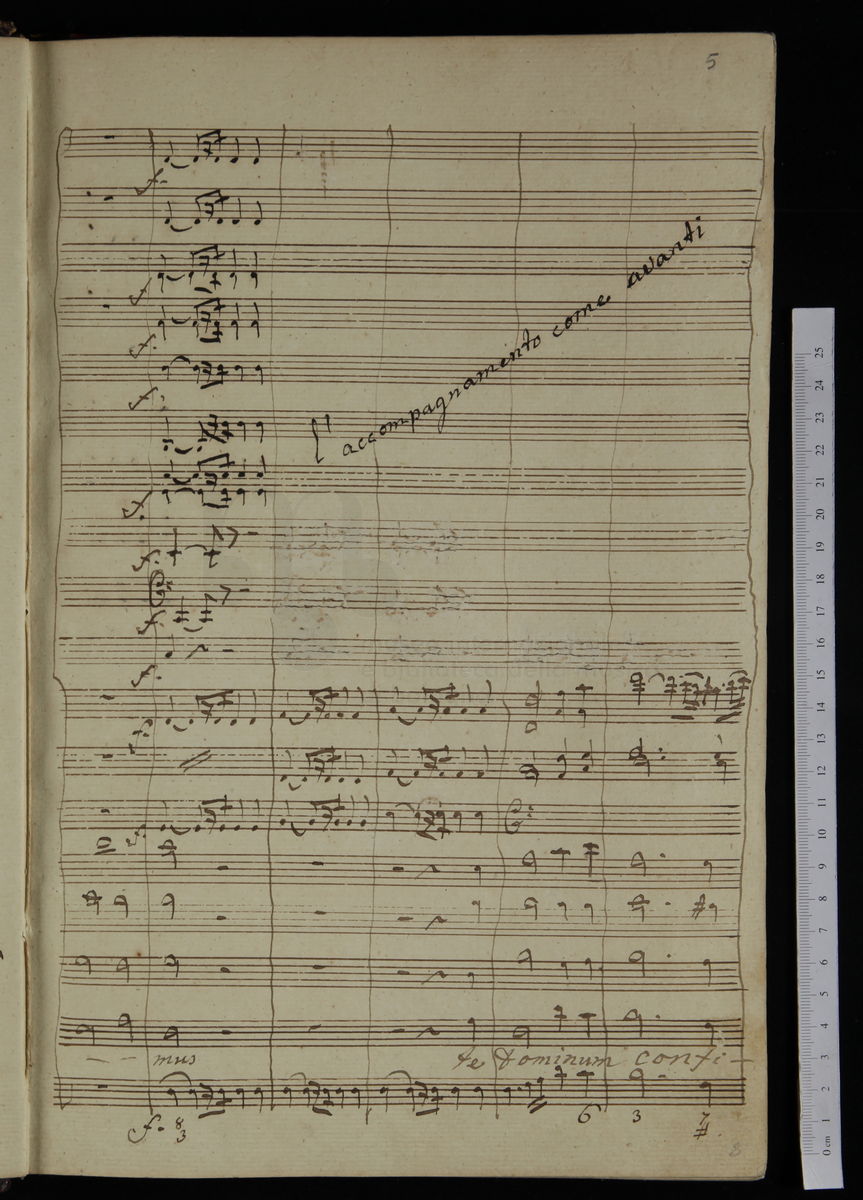 5
f.
f.
f.
f.
f.
l'accompagnamento come avanti
f.
f.
f.
f.
- - mus te Dominum confi -
f. 8 6 3 7
3 #.
8
25
24
23
22
21
20
19
18
17
16
15
14
13
12
11
10
9
8
7
6
5
4
3
2
1
0 cm